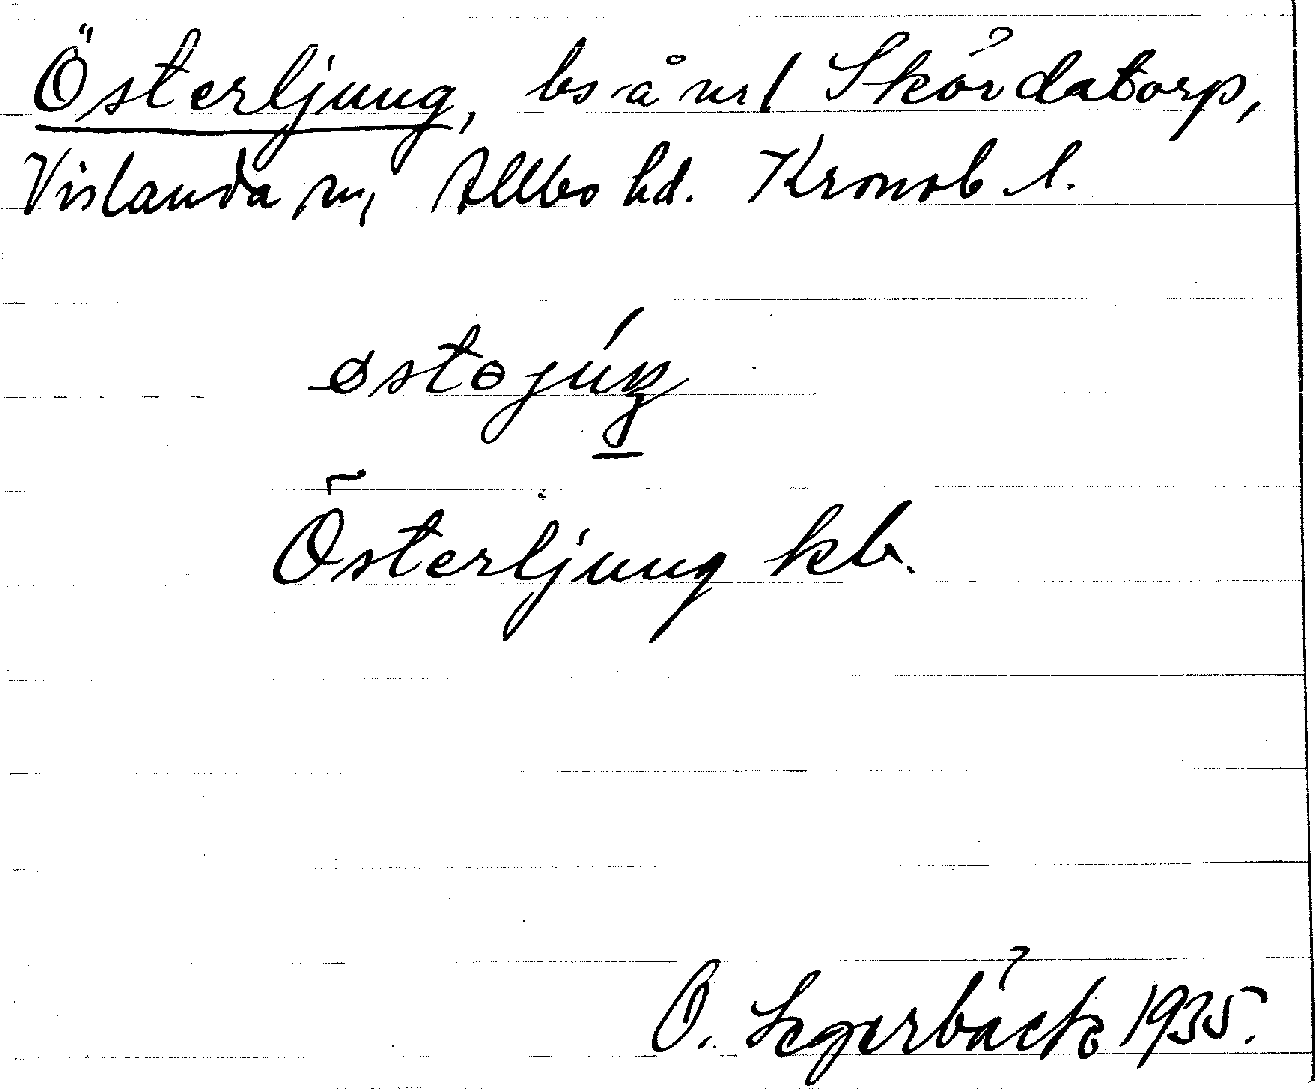 Österljung, bs å nr 1 Skördatorp,
Vislanda sn, Allbo hd. Kronob l.
Österljung kb.
O. Segerbäck 1935.